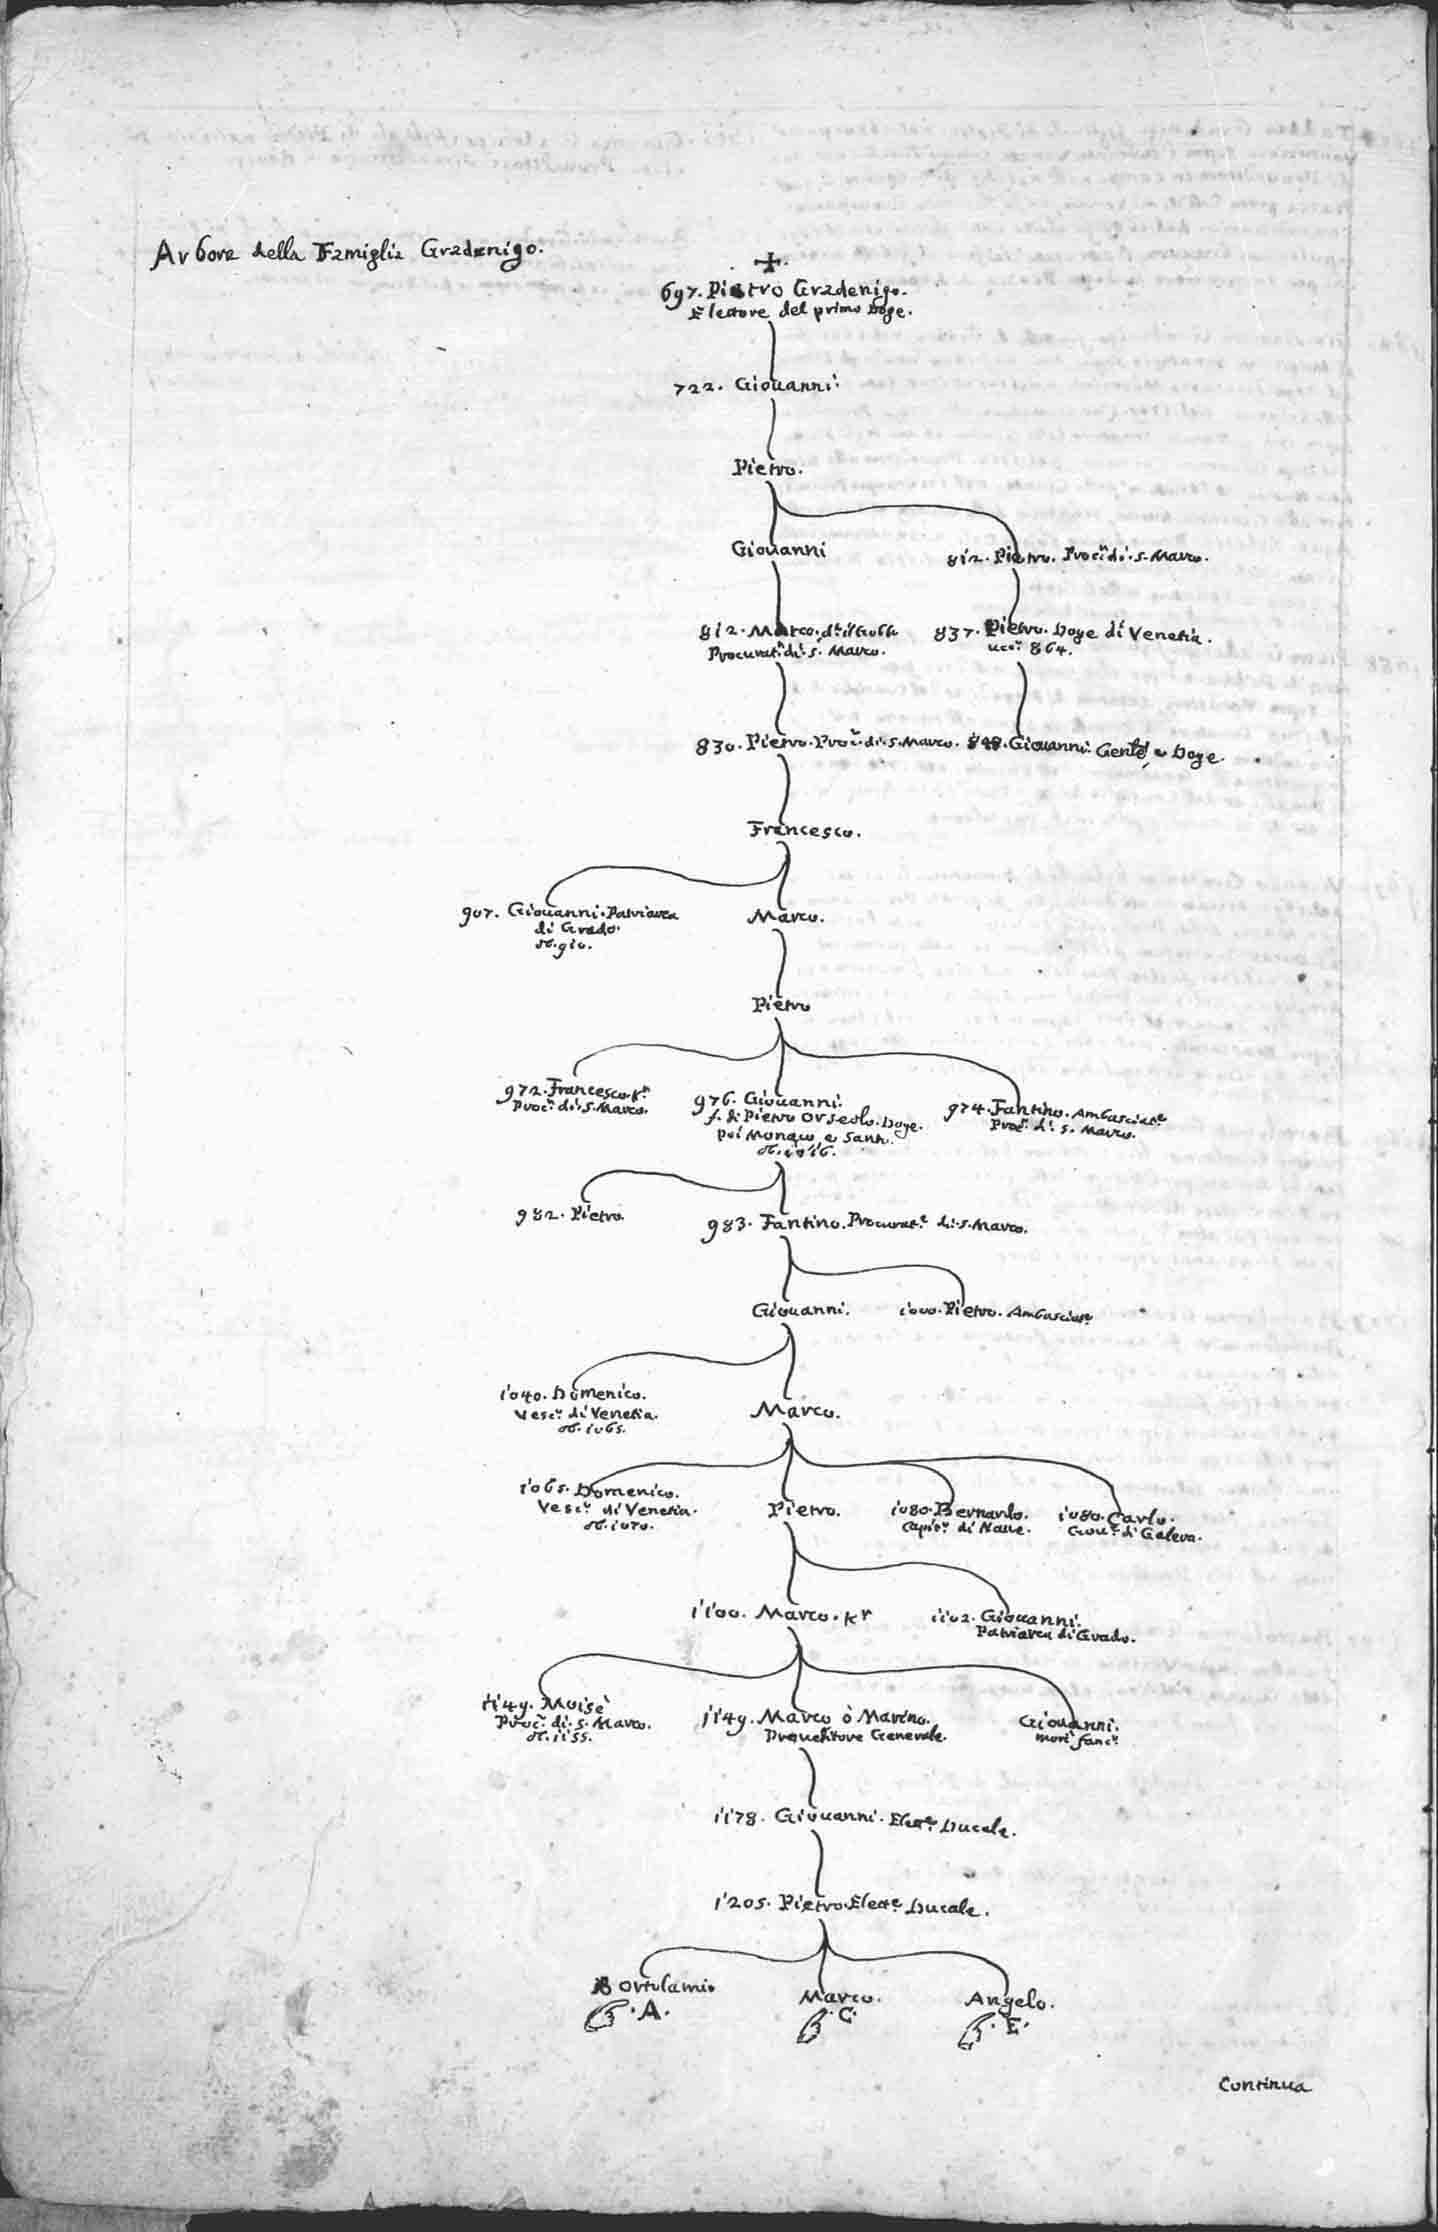 Arbore della Famiglia Gradenigo.
697. Pietro Gradenigo.
Elettore del primo Doge.
722. Giouanni.
Pietro.
Giouanni
812. Pietro. Procr. di. S. Marco.
812. Marco. dto. il Gobbo
Procurat. di. S. Marco.
837. Pietro. Doge di Venetia.
ucc. 864.
830. Pietro. Proc. di. S. Marco.
848. Giouanni. e Doge.
Francesco.
907. Giouanni. Patriarca
di Grado.
ob. 910.
Marco.
Pietro
972. Francesco. Kr.
Proc. di. S. Marco.
976. Giouanni.
f. di Pietro Orseolo. Doge.
poi Monaco e Santo.
ob. 1016.
974. Fantino. Ambasciate.
Proc. di. S. Marco.
982. Pietro.
983. Fantino. Procurat. di. S. Marco.
Giouanni.
1000. Pietro. Ambasciate.
1040. Domenico.
Vesco. di Venetia.
ob. 1065.
Marco.
1065. Domenico.
Vesco. di Venetia.
ob. 1070.
Pietro.
1080. Bernardo.
Capito. di Naue.
1080. Carlo.
Gour. di Galera.
1100. Marco. Kr
1102. Giouanni.
Patriarca di Grado.
1149. Moisè
Proc. di. S. Marco.
ob. 1155.
1149. Marco ò Marino.
Proueditore Generale.
Giouanni.
morì fanc.
1178. Giouanni. Elette. Ducale.
1205. Pietro. Elette. Ducale.
Bortolamio
. A.
Marco.
. C.
Angelo.
. E.
Continua